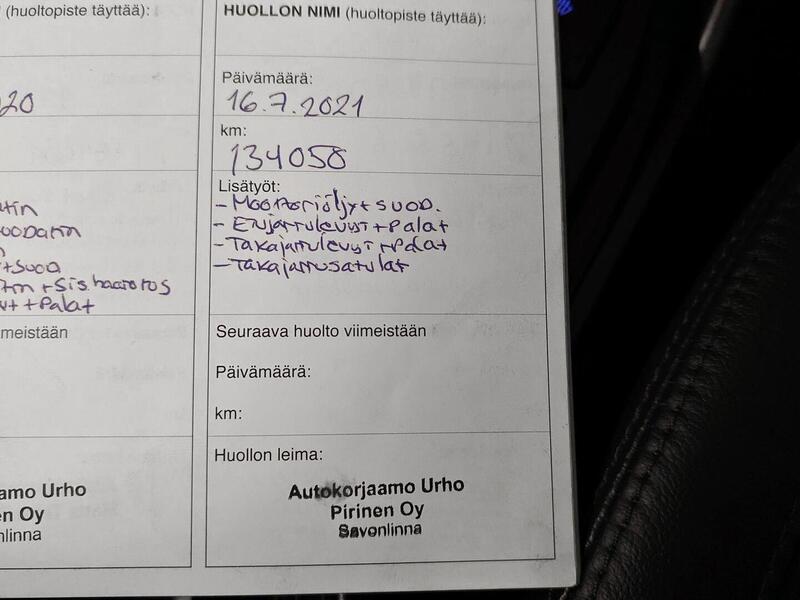 (huoltopiste täyttää):
20
suodatin
+suod
+ sis.haaroros
+ Palat
meistään
amo Urho
en Oy
nlinna
HUOLLON NIMI (huoltopiste täyttää):
Päivämäärä:
16.7.2021
km:
134058
Lisätyöt:
- Moottoriöljy+suod.
- Etujarrulevyt+Palat
- Takajarrulevyt+Palat
- Takajarrusatulat
Seuraava huolto viimeistään
Päivämäärä:
km:
Huollon leima:
Autokorjaamo Urho
Pirinen Oy
Savonlinna